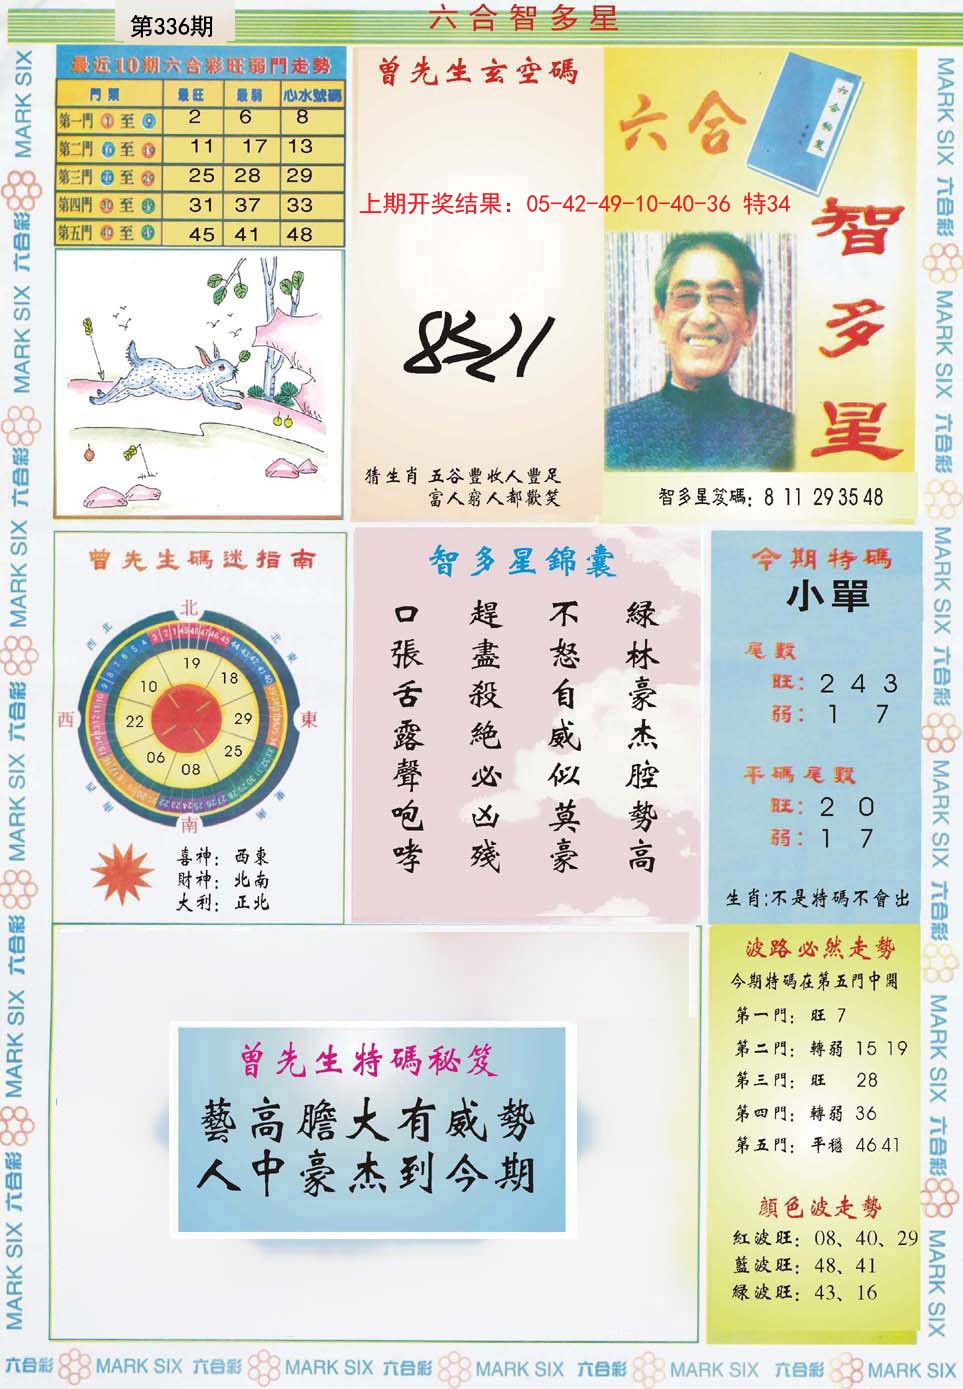 第336期
六合智多星
最近10期六合彩旺弱門走勢
門類 最旺 最弱 心水號碼
第一門 1 至 9 2 6 8
第二門 10 至 19 11 17 13
第三門 20 至 29 25 28 29
第四門 30 至 39 31 37 33
第五門 40 至 49 45 41 48
曾先生玄空碼
六合
智多星
上期开奖结果：05-42-49-10-40-36 特34
猜生肖 五谷豐收人豐足
富人窮人都歡笑
智多星笈碼：8 11 29 35 48
曾先生碼迷指南
北
西
東
南
19
18
29
25
08
06
22
10
喜神：西東
財神：北南
大利：正北
智多星錦囊
綠林豪杰腔勢高
不怒自威似莫豪
趕盡殺絕必凶殘
口張舌露聲咆哮
今期特碼
小單
尾數
旺：2 4 3
弱：1 7
平碼尾數
旺：2 0
弱：1 7
生肖:不是特碼不會出
曾先生特碼秘笈
藝高膽大有威勢
人中豪杰到今期
波路必然走勢
今期特碼在第五門中開
第一門：旺 7
第二門：轉弱 15 19
第三門：旺 28
第四門：轉弱 36
第五門：平穩 46 41
顏色波走勢
紅波旺：08、40、29
藍波旺：48、41
綠波旺：43、16
六合彩 MARK SIX 六合彩 MARK SIX 六合彩 MARK SIX 六合彩 MARK SIX 六合彩 MARK SIX